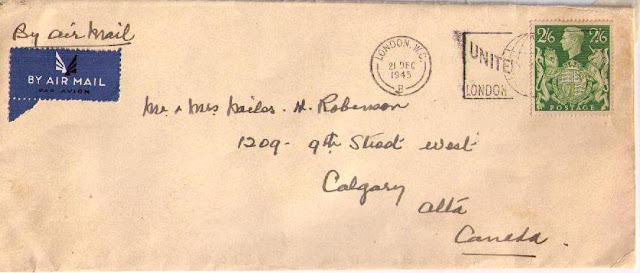 By air Mail
BY AIR MAIL
PAR AVION
LONDON, W.C.
21 DEC
1945
UNITE
LONDON
2/6 2/6
POSTAGE
Mr & Mrs H. Robenson
1209 - 9th Street West
Calgary
Alta
Canada.